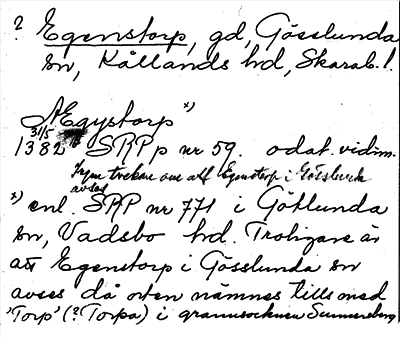 ? Egenstorp, gd, Gösslunda
sn, Kållands hd, Skarab. l.
"Ægystorp" x)
31/5
1382 SRPp nr 59. odat. vidim.
Ingen tvekan om att Egenstorp i Gösslunda
avses
x) enl. SRP nr 771 i Götlunda
sn, Vadsbo hd. Troligare är
att Egenstorp i Gösslunda sn
avses då orten nämnes tills. med
"Torp" (? Torpa) i grannsocknen Sunnersberg